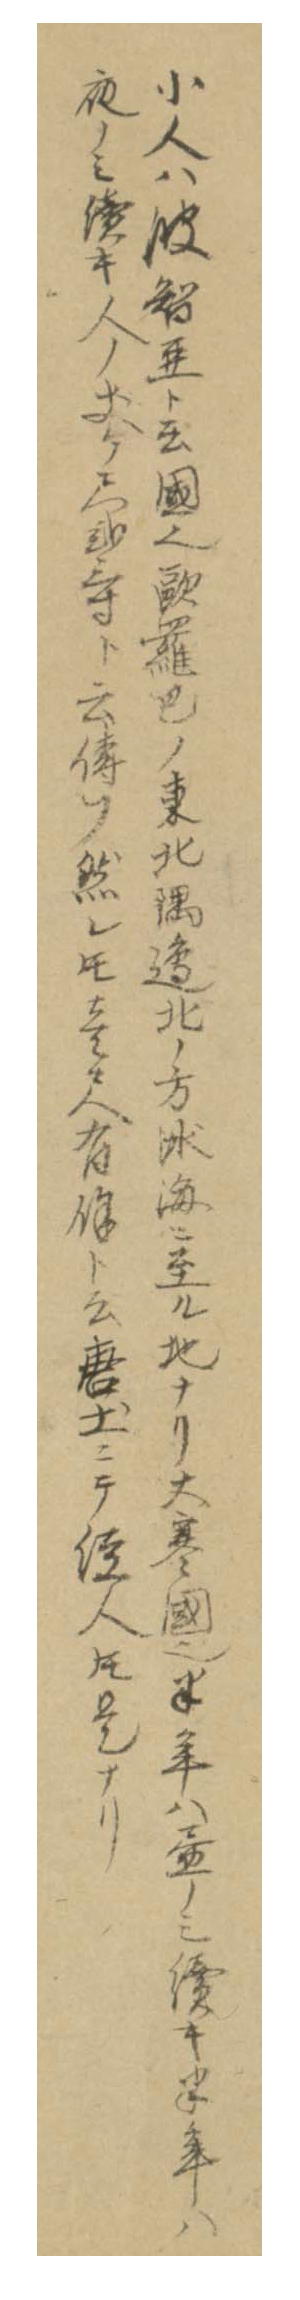 小人ハ波智亜ト云國也歐羅巴ノ東北隅邊北ノ方氷海ニ至ル地ナリ大寒國也半年ハ昼ノミ續キ半年ハ
夜ノミ續キ人ノ丈ケ云傳ト云傳フ然レ𪜈壱尺有餘ト云唐土ニテ矮人𪜈是ナリ